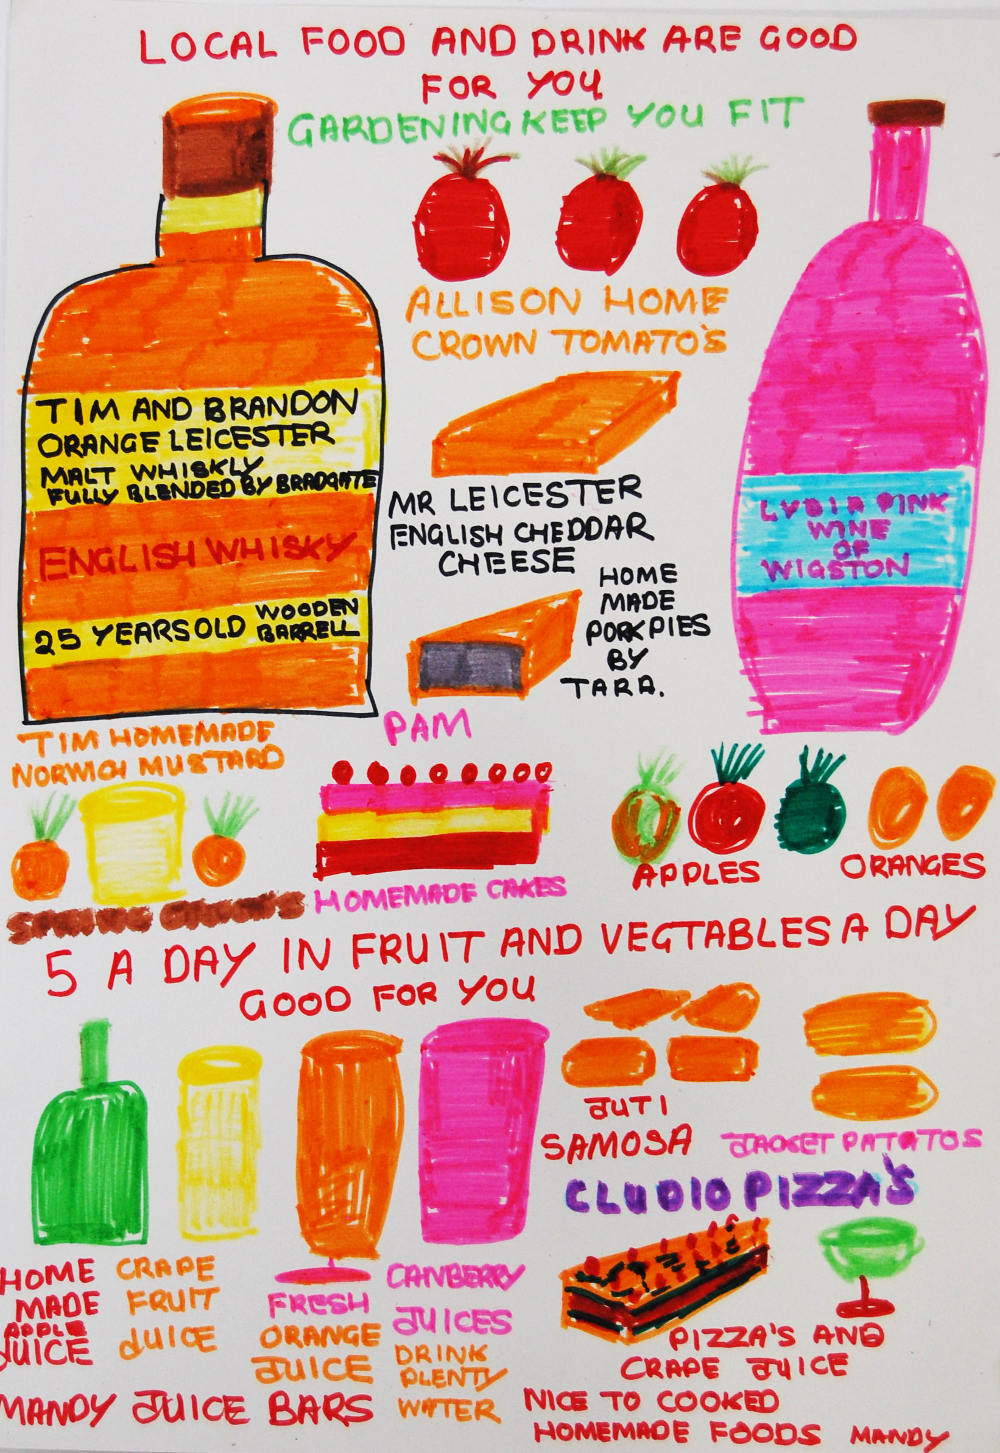 LOCAL FOOD AND DRINK ARE GOOD
FOR YOU
GARDENING KEEP YOU FIT
ALLISON HOME
CROWN TOMATO'S
TIM AND BRANDON
ORANGE LEICESTER
MALT WHISKLY
FULLY BLENDED BY BRADGATE
ENGLISH WHISKY
25 YEARS OLD WOODEN
BARRELL
MR LEICESTER
ENGLISH CHEDDAR
CHEESE
LYDIA PINK
WINE
OF
WIGSTON
HOME
MADE
PORK PIES
BY
TARA.
TIM HOMEMADE
NORWICH MUSTARD
PAM
HOMEMADE CAKES
APPLES
ORANGES
SPRING ONION'S
5 A DAY IN FRUIT AND VEGTABLES A DAY
GOOD FOR YOU
JUTI
SAMOSA
JACKET PATATOS
CLUDIO PIZZA'S
HOME
MADE
APPLE
JUICE
CRAPE
FRUIT
JUICE
FRESH
ORANGE
JUICE
CANBERRY
JUICES
DRINK
PLENTY
WATER
MANDY JUICE BARS
PIZZA'S AND
CRAPE JUICE
NICE TO COOKED
HOMEMADE FOODS MANDY